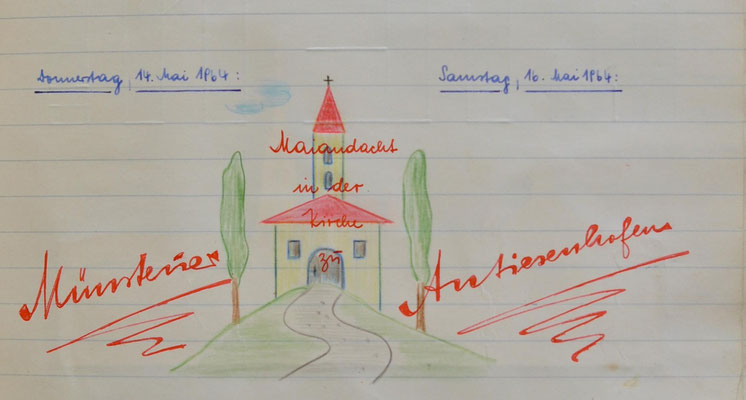 Donnerstag, 14. Mai 1964:
Samstag, 16. Mai 1964:
Maiandacht
in der
Kirche
zu
Münsteuer
Antiesenhofen